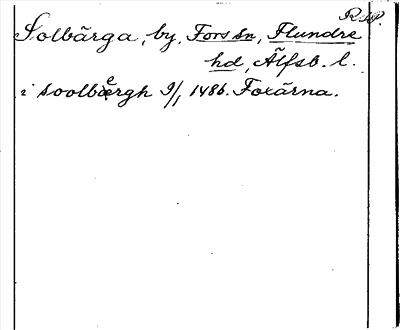 Solbärga, by, Fors sn, Flundre
hd, Älfsb. l.
i soolbergh 9/1 1486. Foxärna.